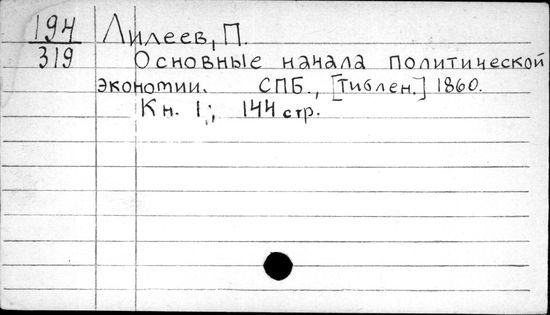 194 Лидеев, П.
319 Основные начала политической
экономии. СПБ., [Тиблен.] 1860.
Кн. 1; 144 стр.